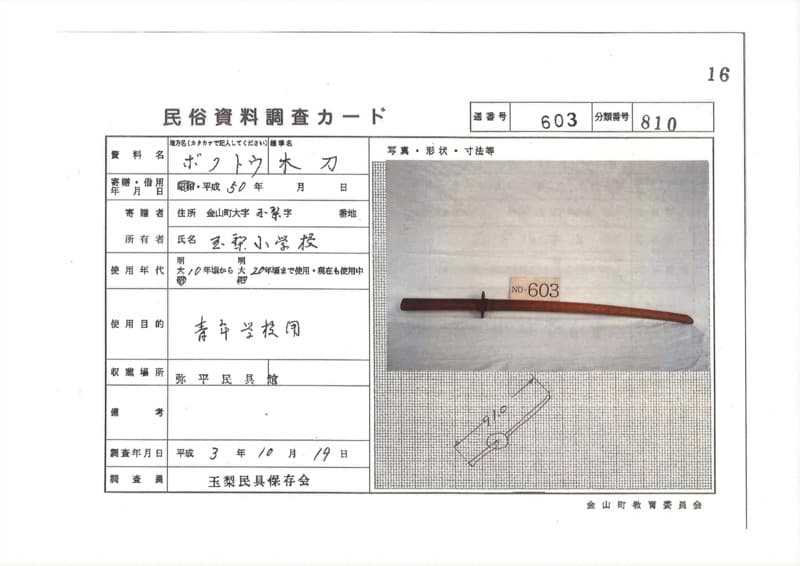 16
民俗資料調査カード
通番号 603 分類番号 810
資料名 地方名(カタカナで記入してください) 標準名
ボクトウ 木刀
寄贈・借用年月日 昭和・平成 50年 月 日
寄贈者 住所 金山町大字 玉梨 字 番地
所有者 氏名 玉梨小学校
使用年代 明大昭 10年頃から 明大昭 20年頃まで使用・現在も使用中
使用目的 青年学校用
収蔵場所 弥平民具館
備考
調査年月日 平成 3年 10月 19日
調査員 玉梨民具保存会
写真・形状・寸法等
NO-603
91.0
金山町教育委員会